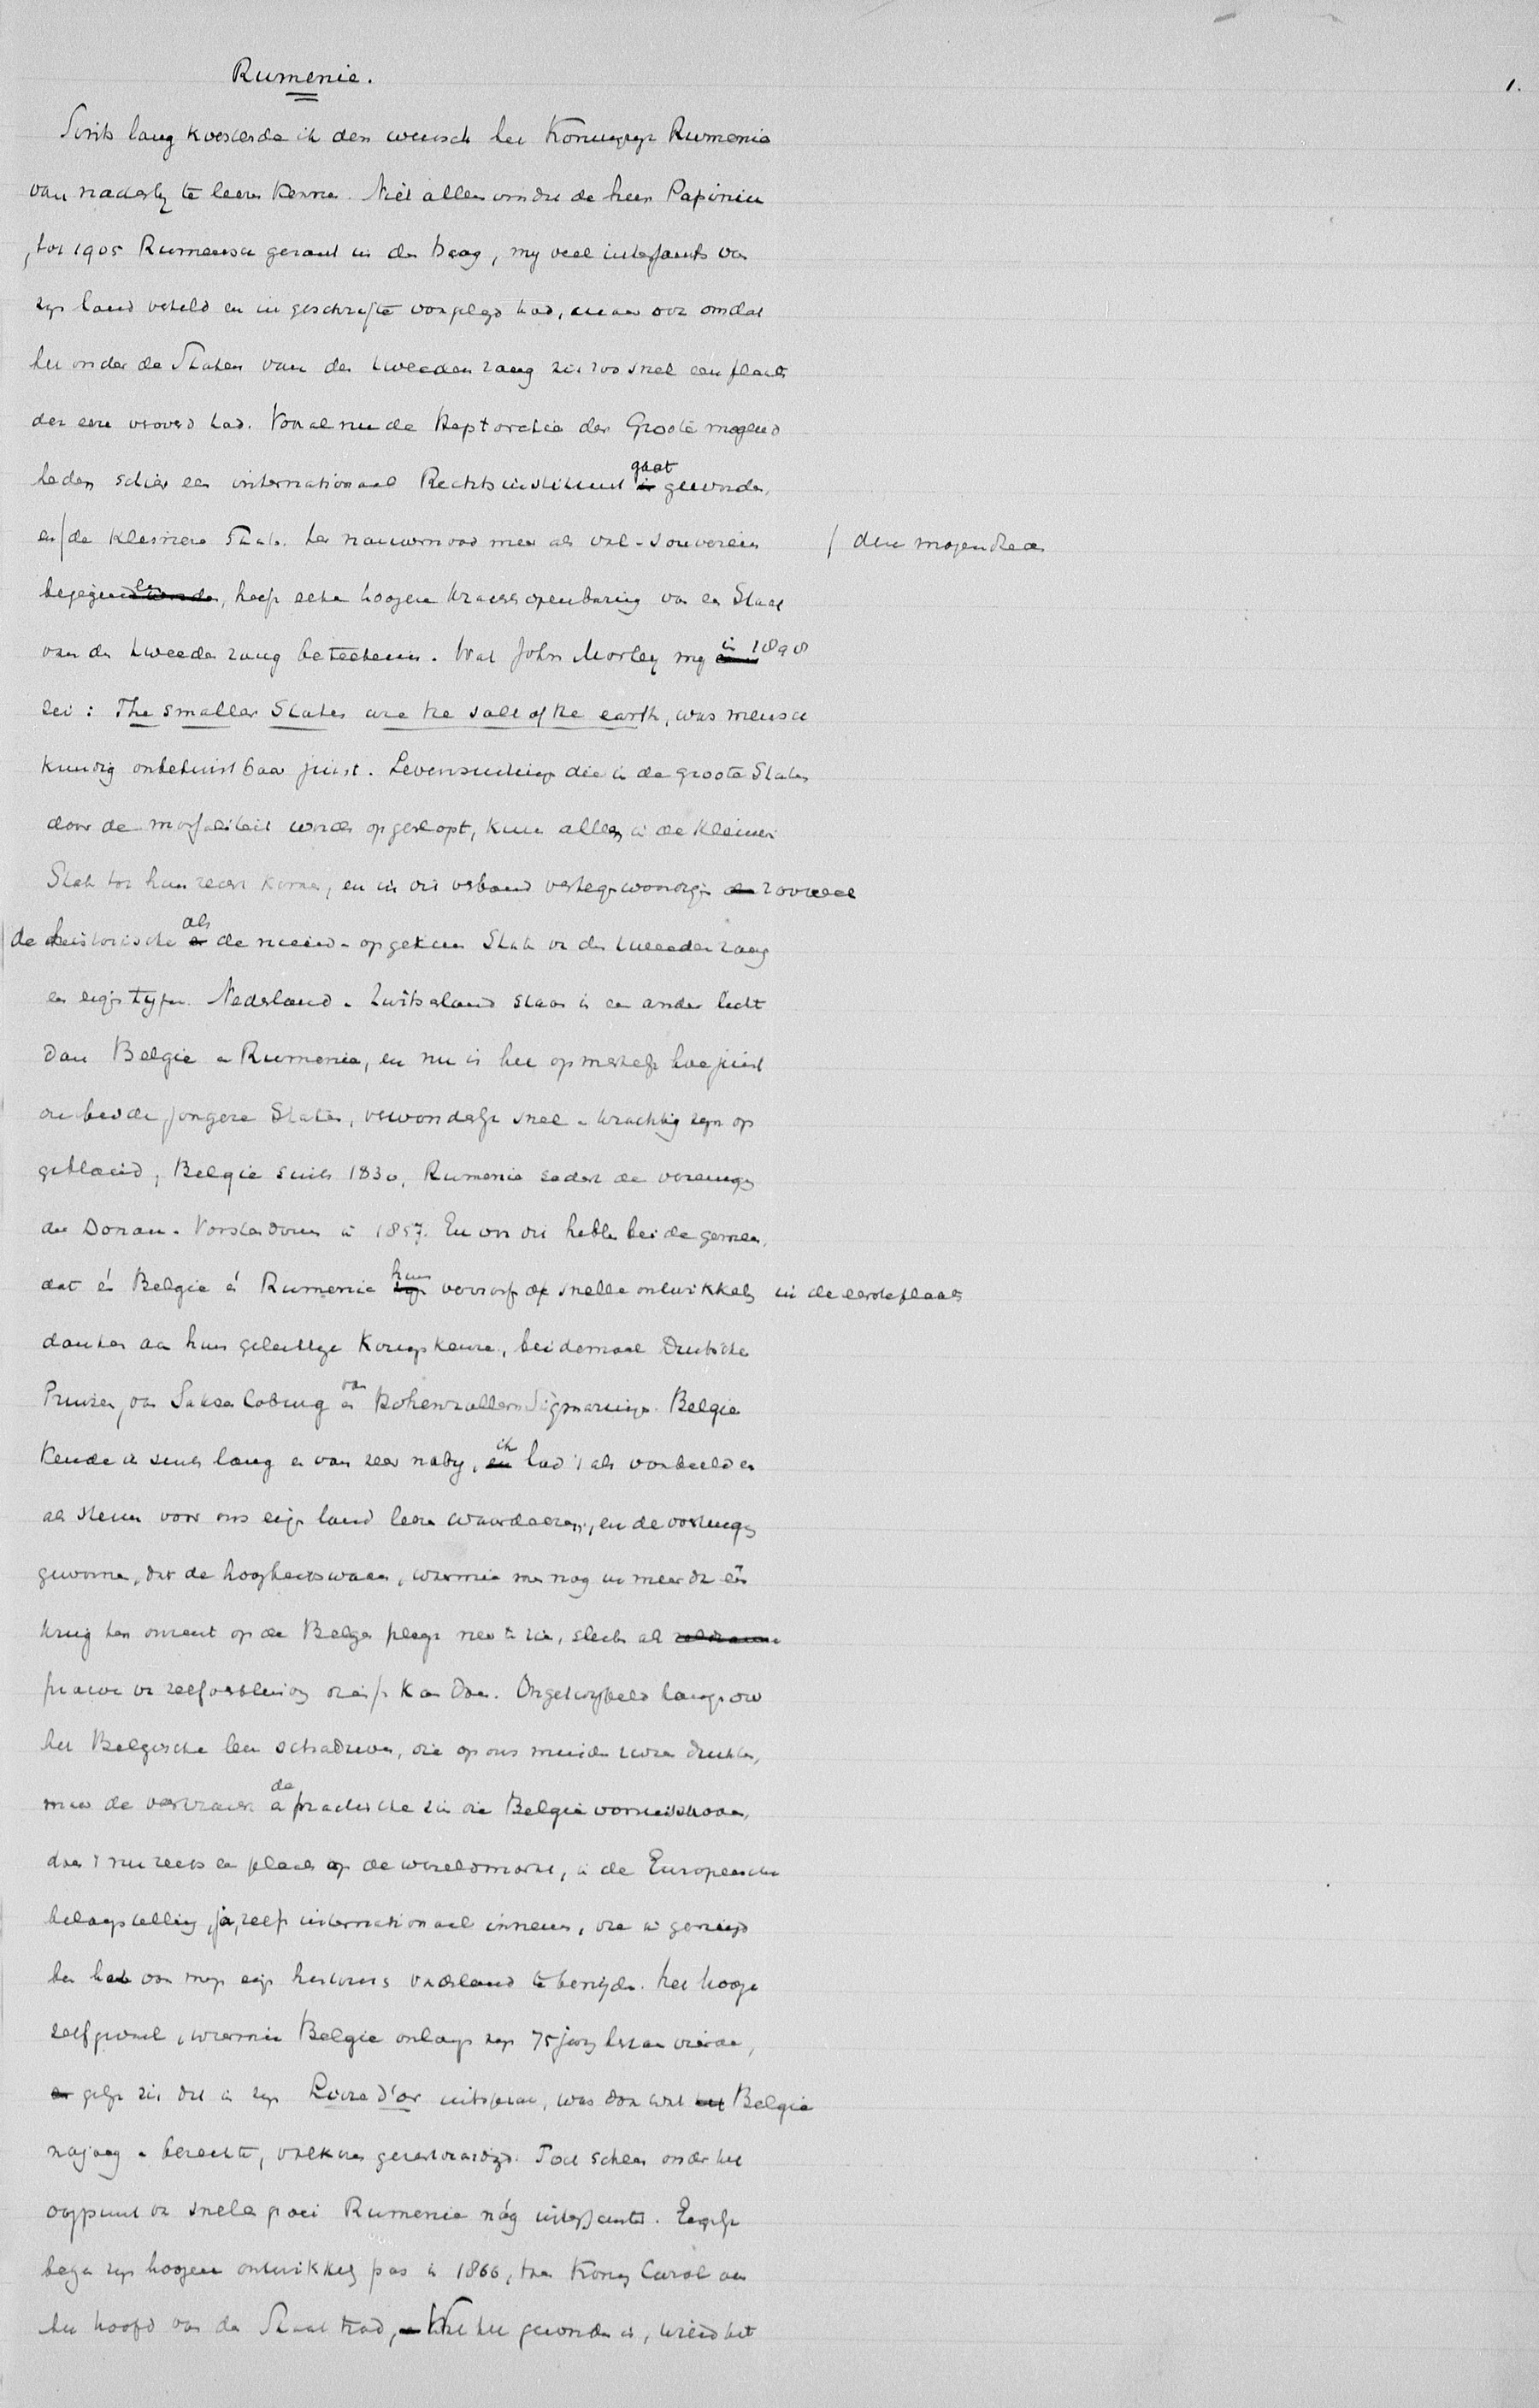 Rumenie.
1.
Sints lang koesterde ik den wensch het Koningrijk Rumenie
van naderbij te leeren kennen. Niet alleen omdat de heer Papiniu
, tot 1905 Rumeensch gezant in den Haag, mij veel interessants van
zijn land verteld en in geschrifte voorgelegd had, maar ook omdat
het onder de Staten van den tweeden rang zich zoo snel een plaats
der eere veroverd had. Vooral nu de Heptarchie der Groote mogend
heden schier een internationaal Rechtsinstituut gaat geworden,
en / de kleinere Staten ter nauwernood meer als vol-souverein / dien mogendheden
begegenen, heeft elke hoogere krachtsopenbaring van een Staat
van den tweeden rang beteekenis. Wat John Morley mij in 1898
zei: The smaller States are the salt of the earth, was mensch
kundig onbetwistbaar juist. Levensuitingen die in de groote Staten
door de massaliteit worden opgeslopt, kunnen alleen in de kleinere
Staten tot hun recht komen, en in dit verband vertegenwoordigen zoowel
de historische als de nieuw-opgekomen Staten van den tweeden rang
een eigen type. Nederland en Zwitserland staan in een ander licht
dan Belgie en Rumenie, en nu is het opmerkelijk hoe juist
die beide jongere Staten, verwonderlijk snel en krachtig zijn op
gebloeid, Belgie sinds 1830, Rumenie sedert de vereeniging
der Donau-Vorstendommen in 1857. En ook dit hebben beide gemeen,
dat én Belgie én Rumenie hun voorspoedige snelle ontwikkeling in de eerste plaats
danken aan hun gelukkige Koningskeuze, beidemaal Duitsche
Prinsen, van Saksen Coburg en van Hohenzollern Sigmaringen. Belgie
kende ik sinds lang en van zeer nabij, ik had 't als voorbeeld en
als steun voor ons eigen land leeren waardeeren, en de overtuiging
gewonnen, dat de hoogheidswaan, waarmee men nog in meer dan één
kring ten onzent op de Belgen pleegt neer te zien, slechts als
proeve van zelfverblinding dienst kan doen. Ongetwijfeld hangen over
het Belgische leven schaduwen, die op ons minder zwaar drukken,
maar de veerkracht en de practische zin die Belgie vooruitschoven,
doen 't nu reeds een plaats op de wereldmarkt, in de Europeesche
belangstelling, ja, zelfs internationaal innemen, die ik geneigd
ben het van mijn eigen historisch vaderland te benijden. Het hooge
zelfgevoel, waarmee Belgie onlangs zijn 75jarig bestaan vierde,
gelijk zich dit in zijn Livre d'or uitsprak, was dan ook wat Belgie
najoeg en bereikte, volkomen gerechtvaardigd. Toch scheen onder het
oogpunt van snelle groei Rumenie nóg interessanter. Eigenlijk
begon zijn hoogere ontwikkeling pas in 1866, toen Koning Carol aan
het hoofd van den Staat trad, Wat het geworden is, wierd het